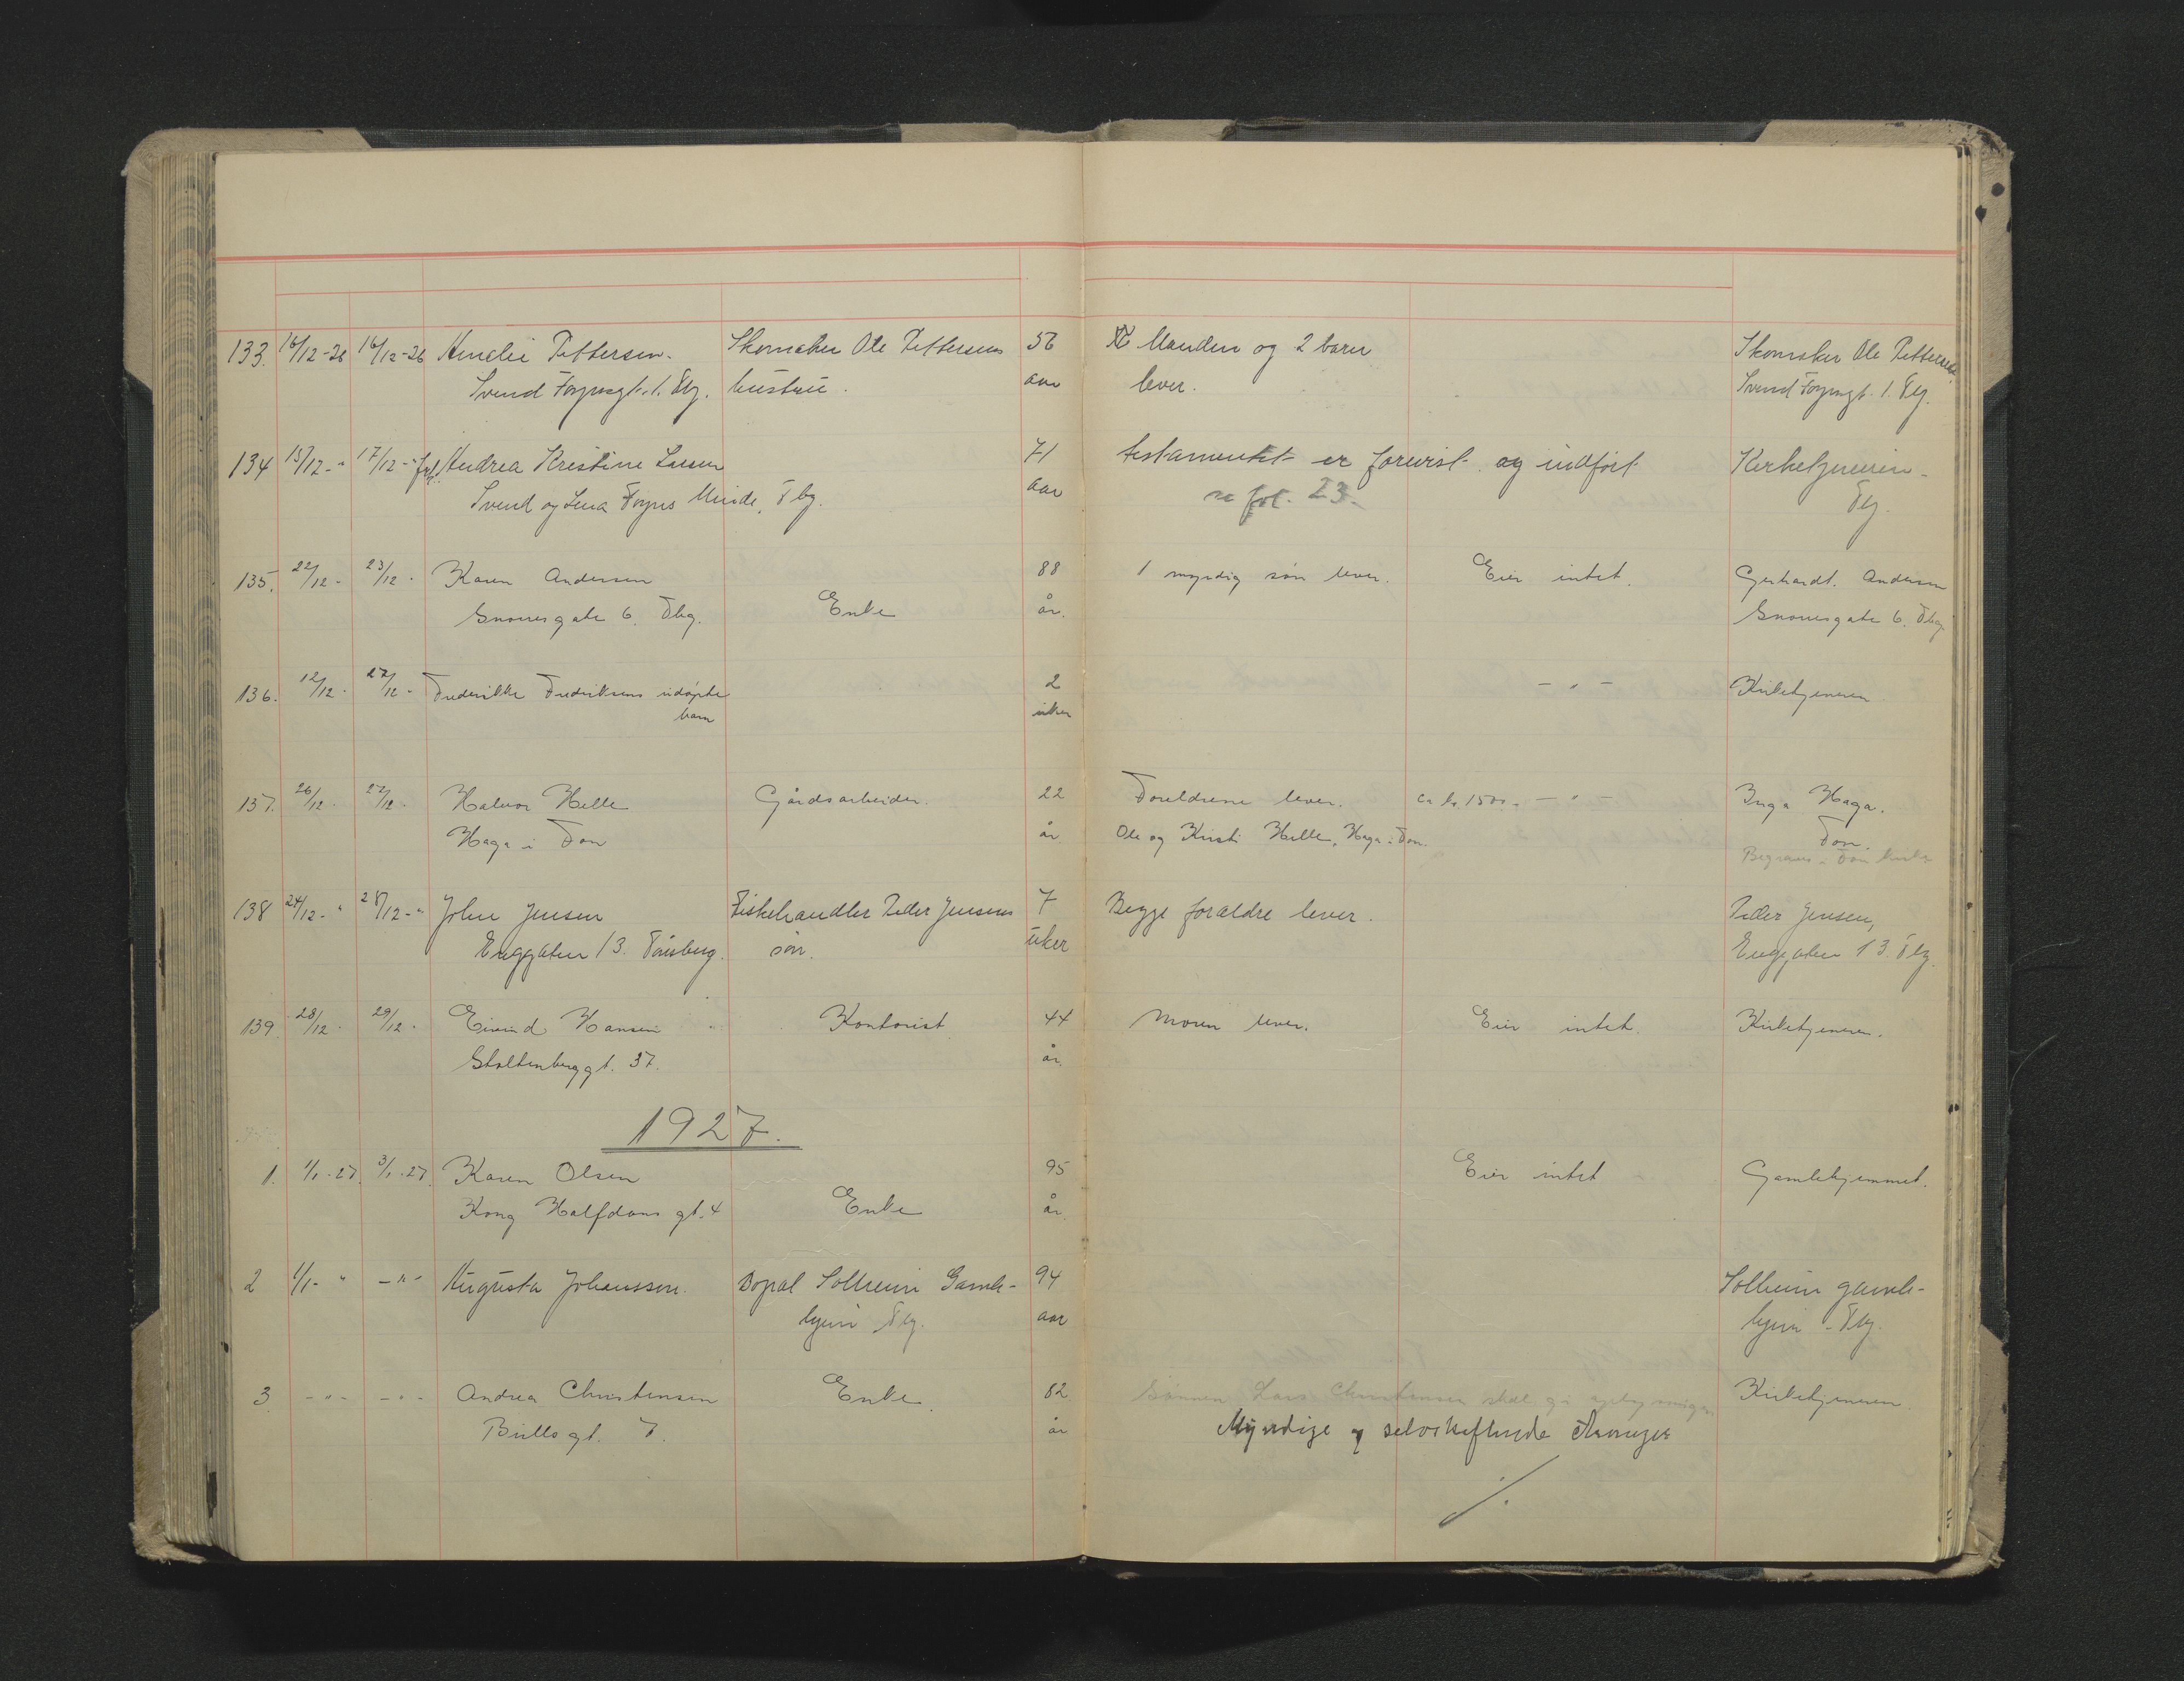 133. 16/12-26 16/12-26 Amalie Pettersen. Skomaker Ole Pettersens 56 Manden og 2 barn Skomaker Ole Pettersen
Svend Foynsgt. 1. Tbg. hustru. aar lever. Svend Foynsgt. 1. Tbg.
134 15/12-" 17/12-" frk. Andrea Kristine Larsen 71 testamentet er forevist og indført Kirketjeneren-
Svend og Lena Foyns Minde, Tbg. aar se fol. 23. Tbg.
135. 22/12- 23/12- Karen Andersen 88 1 myndig søn lever. Eier intet. Gerhardt. Andersen
Snorresgate 6. Tbg. Enke år. Snorresgate 6. Tbg.
136. 12/12- 27/12- Frederikke Fredriksens udøpte 2 - " - Kirketjeneren
barn uker
137. 26/12- 27/12- Halvor Helle Gårdsarbeider. 22 Foreldrene lever. ca kr. 1500.- - " - Inga Haga.
Haga i Fon år Ole og Kirsti Helle, Haga i Fon. Fon.
Begraves i Fon kirke
138 24/12-" 28/12-" John Jensen Fiskehandler Peder Jensens 7 Begge forældre lever. Peder Jensen,
Enggaten 13. Tønsberg. søn. uker Enggaten 13. Tbg.
139 28/12- 29/12- Eivind Hansen Kontorist 44 Moren lever. Eier intet. Kirketjeneren.
Stoltenberggt. 37. år.
1927.
1. 1/1-27. 3/1-27. Karen Olsen 95 Eier intet - Gamlehjemmet.
Kong Halfdans gt. 4 Enke år.
2 1/1-" -"- Augusta Johanssen. Bopæl Solheim Gamle- 94 Solheim gamle-
hjem Tbg. aar hjem - Tbg.
3 -"- -"- Andrea Christensen Enke. 82 Sønnen Lars Christensen skal gi Kirketjeneren.
Bulls gt. 7. år Myndige og selvskiftende Arvinger